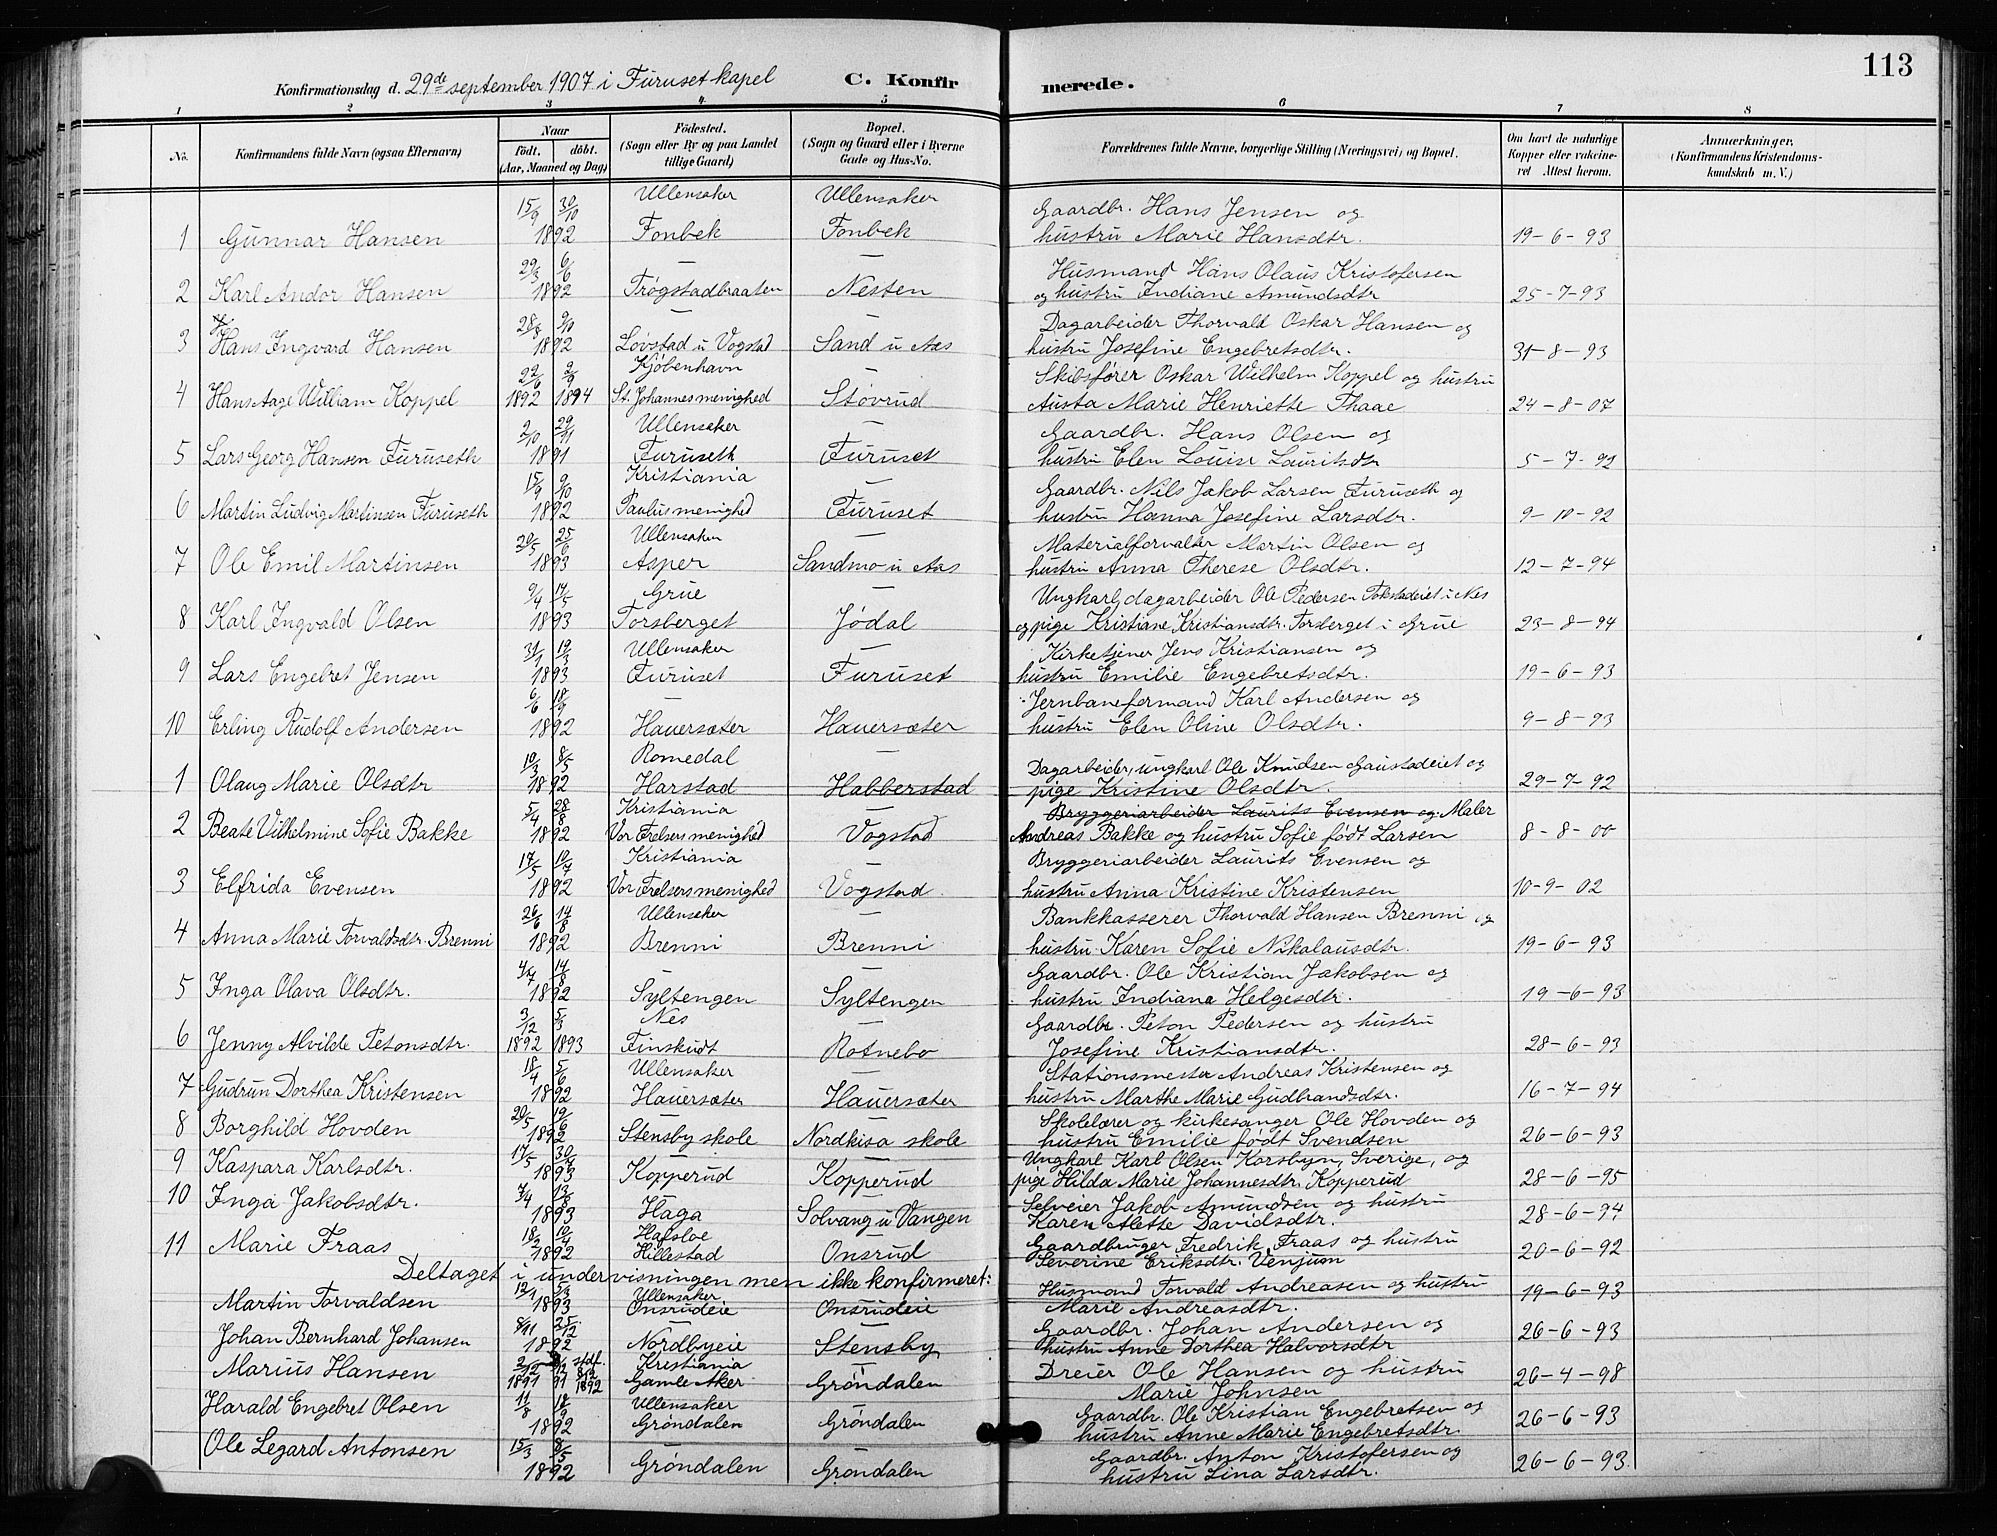 113
Konfirmationsdag d. 29de september 1907 i Furuset kapel C. Konfirmerede.
1 2 3 4 5 6 7 8
No. Konfirmandens fulde Navn (ogsaa Efternavn) Naar født. døbt. (Aar, Maaned og Dag) Fødested. (Sogn eller By og paa Landet tillige Gaard) Bopæl. (Sogn og Gaard eller i Byerne Gade og Hus-No. Forældrenes fulde Navne, borgerlige Stilling (Næringsvei) og Bopæl. Om havt de naturlige Kopper eller vakcineret Attest herom. Anmærkninger. (Konfirmandens Kristendomskundskab m. V.)
15/9 30/10 Ullensaker Ullensaker Gaardbr. Hans Jensen og
1 Gunnar Hansen 1892 Fonbek Fonbek hustru Marie Hansdtr. 19-6-93
29/3 6/6 — — Husmand Hans Olaus Kristofersen
2 Karl Andor Hansen 1892 Trøgstadbraaten Nesten og hustru Indiane Amundsdtr 25-7-93
9/10 — — Dagarbeider Thorvald Oskar Hansen og
3 Hans Ingvard Hansen 1892 Løvstad u Vogstad Sand u Aas hustru Josefine Engebretsdtr. 31-8-93
22/6 2/9 Kjøbenhavn — Skibsfører Oskar Wilhelm Koppel og hustru
4 Hans Aage William Koppel 1892 1894 St. Johannes menighed Støvrud Austa Marie Henriette Thaae 24-8-07
2/10 29/11 Ullensaker — Gaardbr. Hans Olsen og
5 Lars Georg Hansen Furuseth 1891 Furuseth Furuset hustru Elen Louise Lauritsdtr 5-7-92
15/9 9/10 Kristiania — Gaardbr. Nils Jakob Larsen Furuseth og
6 Martin Ludvig Martinsen Furuseth 1892 Paulus menighed Furuset hustru Hanna Josefine Larsdtr. 9-10-92
20/5 25/6 Ullensaker — Materialforvalter Martin Olsen og
7 Ole Emil Martinsen 1893 Asper Sandmo u Aas hustru Anna Therese Olsdtr. 12-7-94
9/4 14/5 Grue — Ungkarl, dagarbeider Ole Pedersen Tokstadeiet i Nes
8 Karl Ingvald Olsen 1893 Torsberget Jødal og pige Kristiane Kristiansdtr. Torsberget i Grue 23-8-94
31/1 19/3 Ullensaker — Kirketjener Jens Kristiansen og
9 Lars Engebret Jensen 1893 Furuset Furuset hustru Emilie Engebretsdtr. 19-6-93
6/6 18/9 — Jernbaneformand Karl Andersen og
10 Erling Rudolf Andersen 1892 Hauersæter Hauersæter hustru Elen Oline Olsdtr. 9-8-93
10/3 8/5 Romedal — Dagarbeider, ungkarl Ole Knudsen Gaustadeiet og
1 Olaug Marie Olsdtr 1892 Harstad Habberstad pige Kristine Olsdtr. 29-7-92
5/4 28/8 Kristiania — Bryggeriarbeider Laurits Evensen og Maler
2 Beate Vilhelmine Sofie Bakke 1892 Vor Frelsers menighed Vogstad Andreas Bakke og hustru Sofie født Larsen 8-8-00
17/5 10/7 Kristiania — Bryggeriarbeider Laurits Evensen og
3 Elfrida Evensen 1892 Vor Frelsers menighed Vogstad hustru Anna Kristine Kristensen 10-9-02
26/6 14/8 Ullensaker — Bankkasserer Thorvald Hansen Brenni og
4 Anna Marie Torvaldsdtr. Brenni 1892 Brenni Brenni hustru Karen Sofie Nikolausdtr. 19-6-93
4/7 14/8 — — Gaardbr. Ole Kristian Jakobsen og
5 Inga Olava Olsdtr. 1892 Syltengen Syltengen hustru Indiana Helgesdtr. 19-6-93
3/12 5/3 Nes — Gaardbr. Peton Pedersen og hustru
6 Jenny Alvilde Petonsdtr. 1892 1893 Finskudt Rotnebo Josefine Kristiansdtr. 28-6-93
18/4 5/6 Ullensaker — Stationsmester Andreas Kristensen og
7 Gudrun Dorthea Kristensen 1892 Hauersæter Hauersæter hustru Marthe Marie Gudbrandsdtr. 16-7-94
20/5 19/6 — — Skolelærer og kirkesanger Ole Hovden og
8 Borghild Hovden 1892 Stensby skole Nordkisa skole hustru Emilie født Svendsen 26-6-93
17/5 — — Ungkarl Karl Olsen Korsbyn, Sverige, og
9 Kaspara Karlsdtr. 1893 Kopperud Kopperud pige Hilda Marie Johannesdtr. Kopperud 28-6-95
7/4 — — Selveier Jakob Amundsen og hustru
10 Inga Jakobsdtr. 1893 Haga Solvang u Vangen Karen Alette Davidsdtr. 28-6-94
18/2 10/4 Hafsloe — Gaardbruger Fredrik Fraas og hustru
11 Marie Fraas 1892 Hillestad Onsrud Severine Eriksdtr. Venjum 20-6-92
Deltaget i undervisningen men ikke konfirmeret:
5/3 Ullensaker Husmand Torvald Andreasen og hustru
Martin Torvaldsen 1893 Onsrudeie Onsrudeie Marie Andreasdtr. 19-6-93
8/11 25/12 — — Gaardbr. Johan Andersen og
Johan Bernhard Johansen 1892 Nordbyeie Stensby hustru Anne Dorthea Halvorsdtr 26-6-93
Kristiania — Dreier Ole Hansen og hustru
Marius Hansen 1891 91 1892 Gamle Aker Grøndalen Marie Johnsen 26-4-98
11/8 Ullensaker — Gaardbr. Ole Kristian Engebretsen og
Harald Engebret Olsen 1892 Grøndalen Grøndalen hustru Anne Marie Engebretsdtr. 26-6-93
15/3 8/5 — — Gaardbr. Anton Kristofersen og
Ole Legard Antonsen 1892 Grøndalen Grøndalen hustru Lina Larsdtr. 26-6-93.